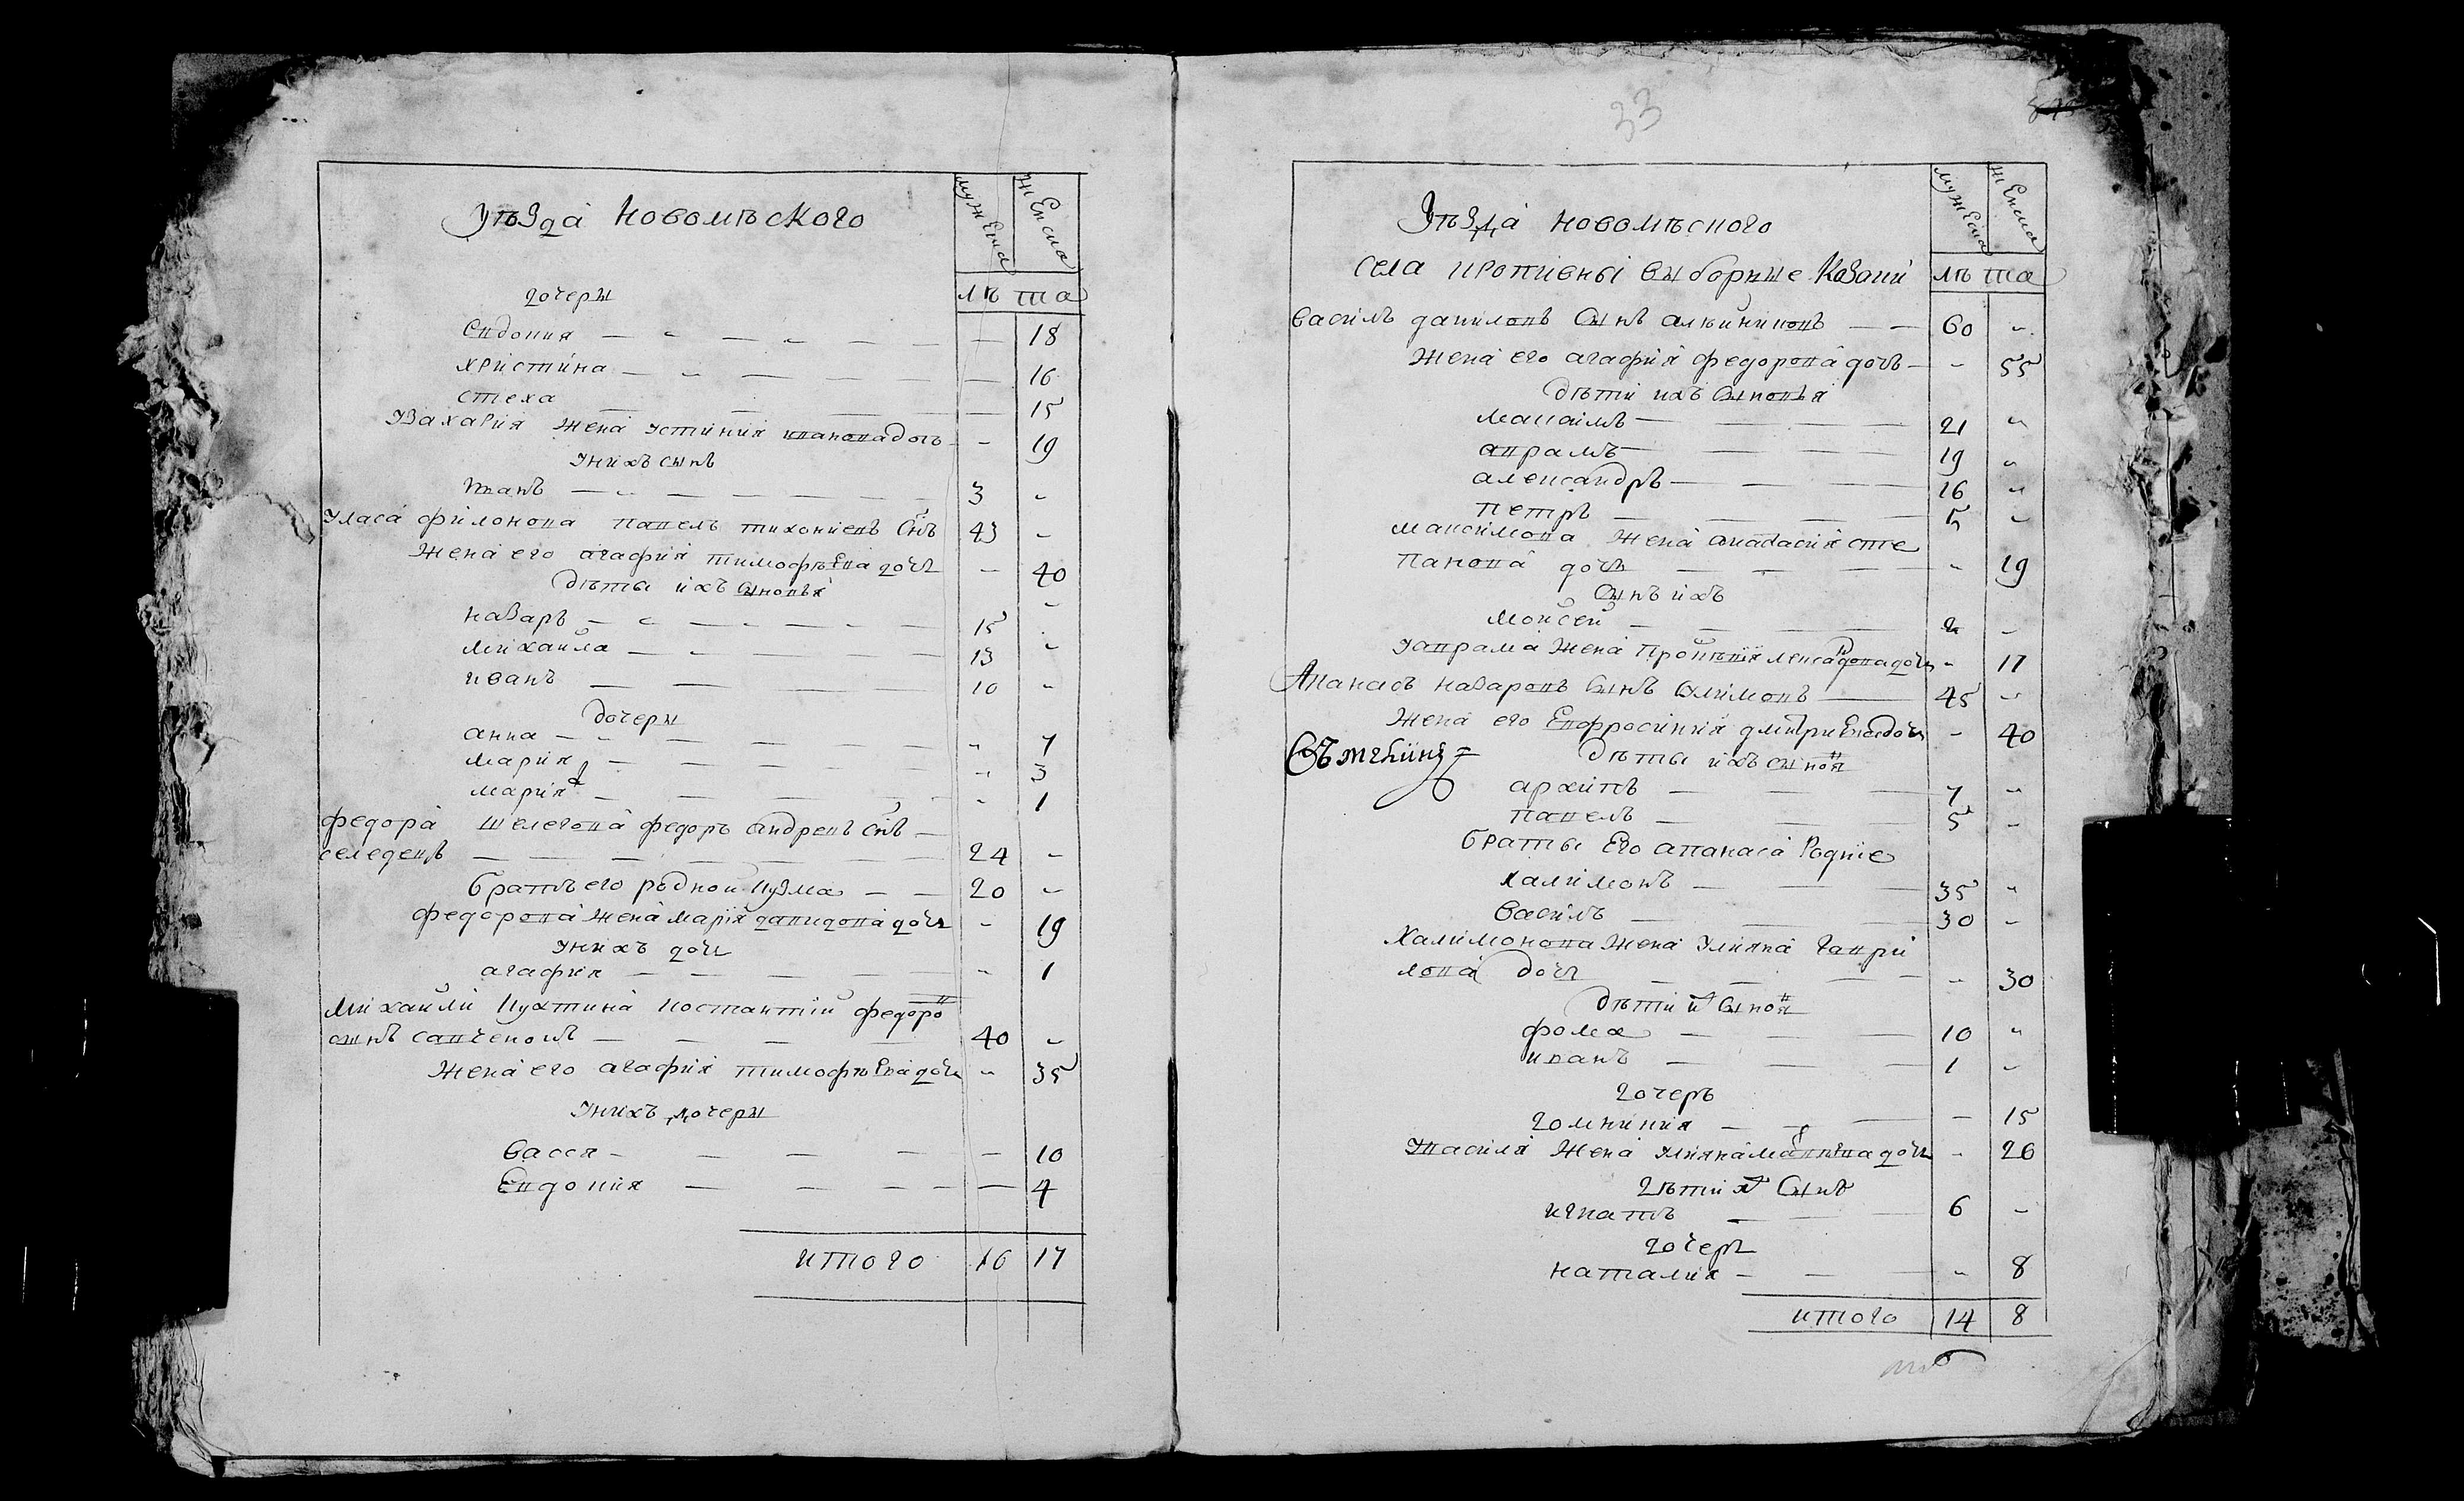 уѣзда новомѣского
мужеска
женска
лѣта
дочеры
Евдокия — — 18
христина — — 16
стеха — — 15
у Захария жена устиния иванова дочь — 19
у нихъ сынъ
иванъ — 3 —
уласа филонова павелъ тихониевъ снъ 43 —
жена его агафия тимофѣева дочъ — 40
дѣты ихъ сыновья
назаръ — 15 —
михаила — 13 —
иванъ — 10 —
дочеры
анна — — 7
мария — — 3
мария — — 1
федора шелегова федоръ андревъ снъ —
селедецъ — 24 —
братъ его родной кузма — 20 —
федорова жена мария давидова дочъ — 19
у нихъ дочъ
агафия — — 1
михаили кухтина костантій федоро
сынъ савченокъ — 40 —
жена его агафия тимофѣева дочъ — 35
у нихъ дочеры
васся — — 10
Евдокия — — 4
итого 16 17
33
уѣзда новомѣского
мужеска
женска
села кропивні выборные козаки
лѣта
василь даниловъ сынъ алѣйниковъ — 60 —
жена его агафия федорова дочъ — 55
дѣти ихъ сыновья
максимъ — 21 —
аврамъ — 19 —
александръ — 16 —
петръ — 5 —
максимова жена анастасия сте
панова дочъ — — 19
сынъ ихъ
мойсей — 2 —
у аврама жена дочъ — 17
Апанасъ назаровъ сынъ халимонъ — 45 —
жена его Евфросиния дмитриева дочъ — 40
дѣты ихъ сынов
архипъ — 7 —
павелъ — 5 —
браты Его апанаса родние
халимонъ — 35 —
василь — 30 —
халимонова жена улияна гаври
лова дочъ — — 30
дѣти их сынов
фома — 10 —
иванъ — 1 —
дочеръ
домникия — — 15
у василя жена улияна дочъ — 26
дѣти их сынъ
игнатъ — 6 —
дочеръ
наталия — — 8
итого 14 8